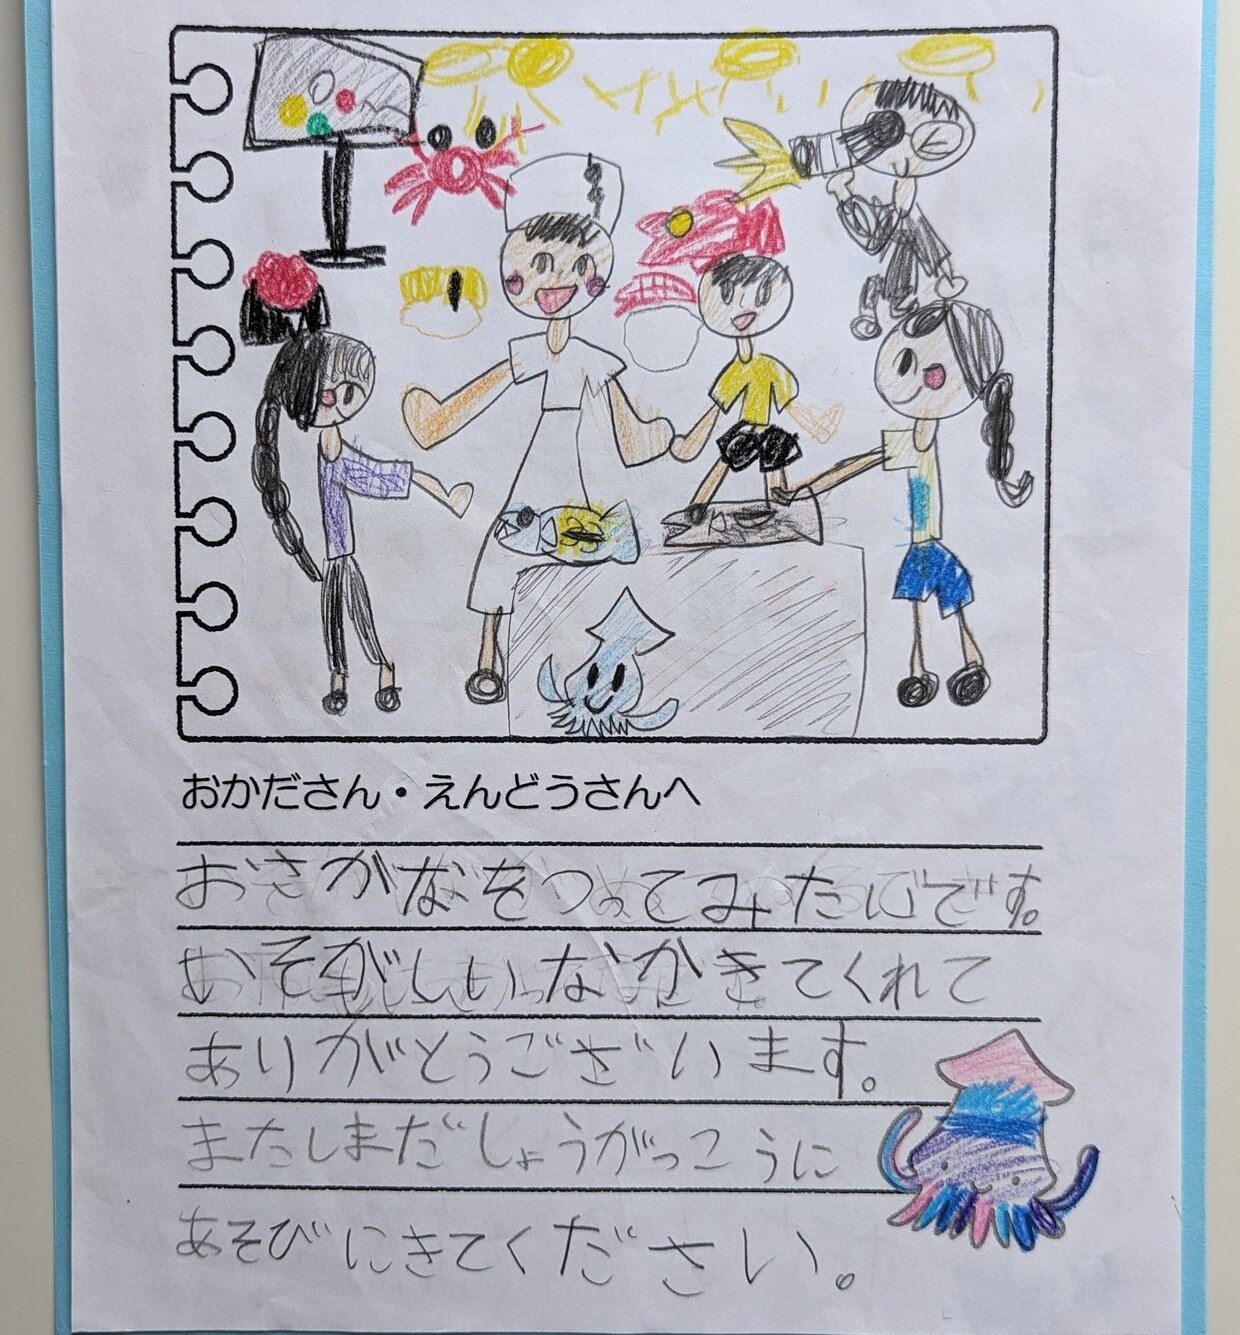 おかださん・えんどうさんへ
おさかなをつってみたいです。
いそがしいなかきてくれて
ありがとうございます。
またしまだしょうがっこうに
あそびにきてください。